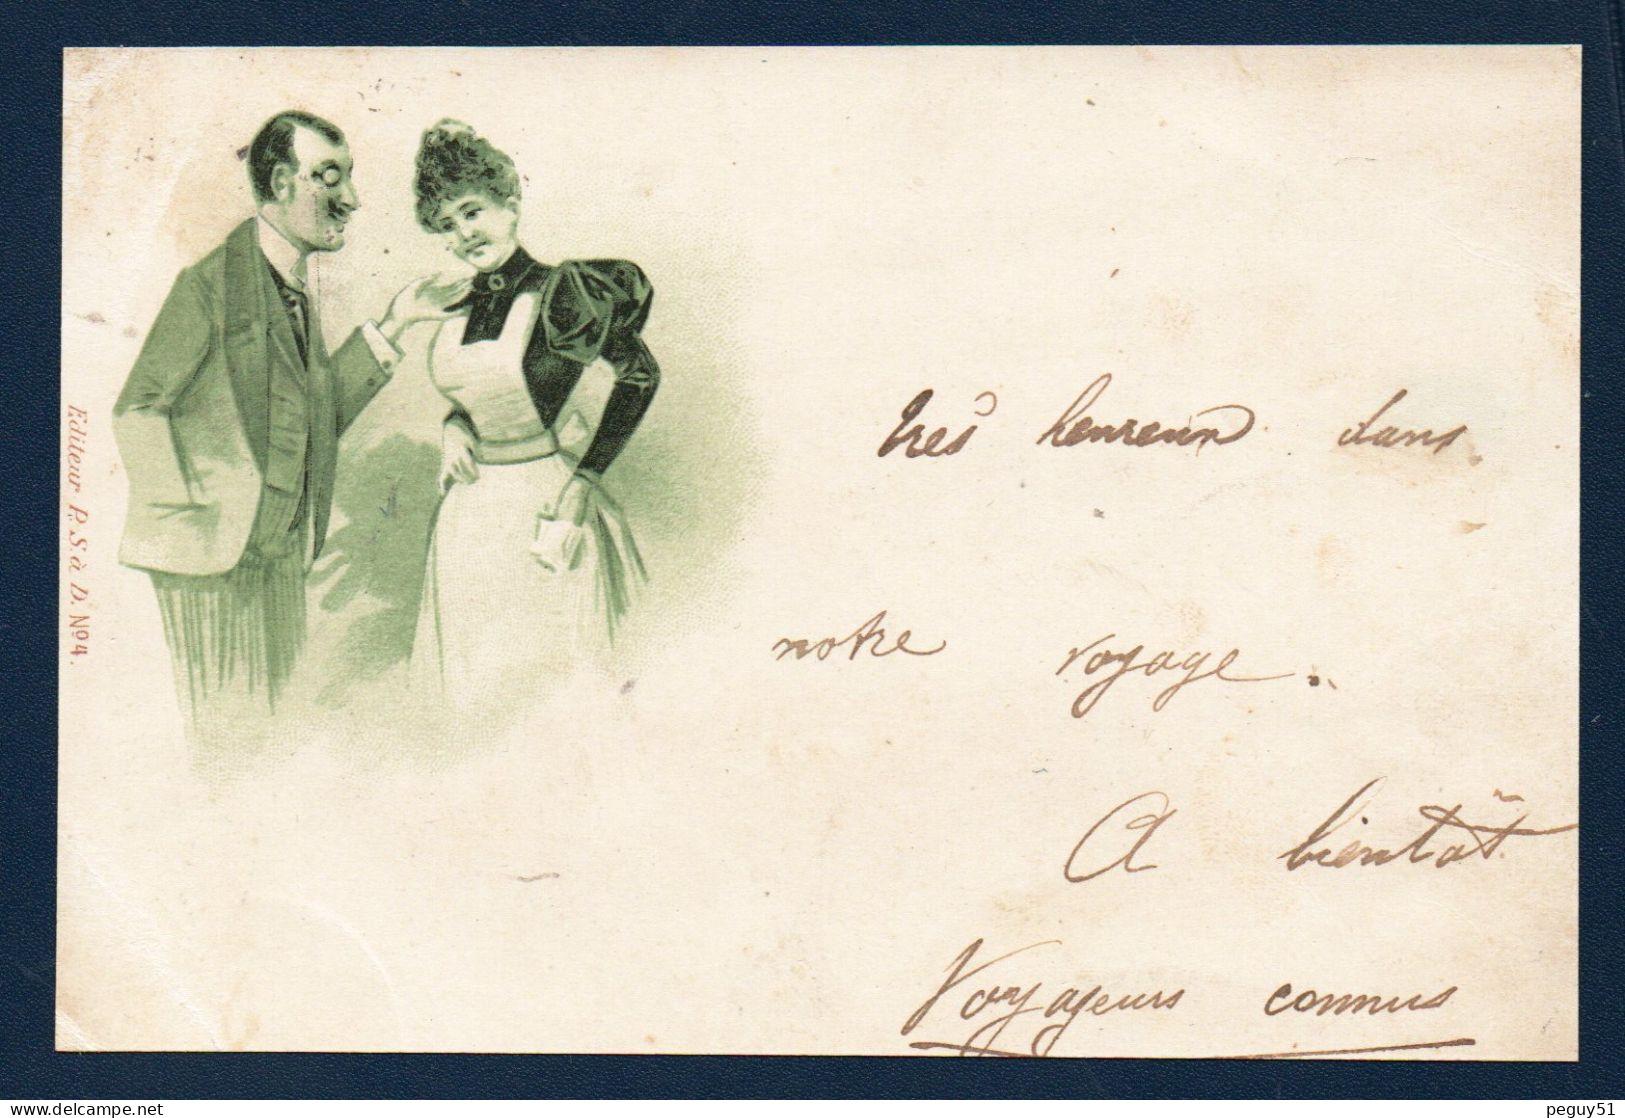 Editeur P. S. à D. Nº 4.
très heureux dans
notre voyage.
A bientôt
Voyageurs connus
delcampe.net
peguy51